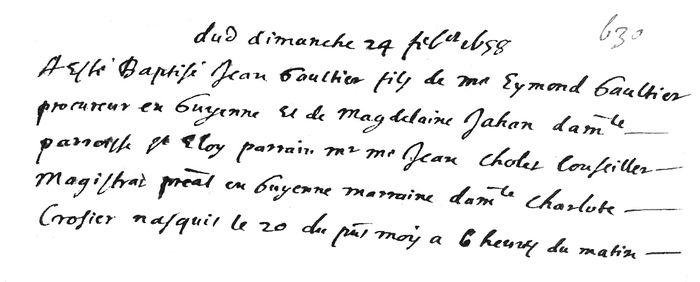 dud dimanche 24 feb^er 1658
630
A Esté Baptisé Jean Gaultier fils de me Eymond Gaultier
procureur en Guyenne Et de Magdelaine Jahan dam^lle
parroisse st Eloy parrain mr me Jean Cholet Conseiller
Magistrat pñal en Guyenne marraine dam^lle Charlote
Crosier nasquit le 20 du pñt moys a 6 heures du matin